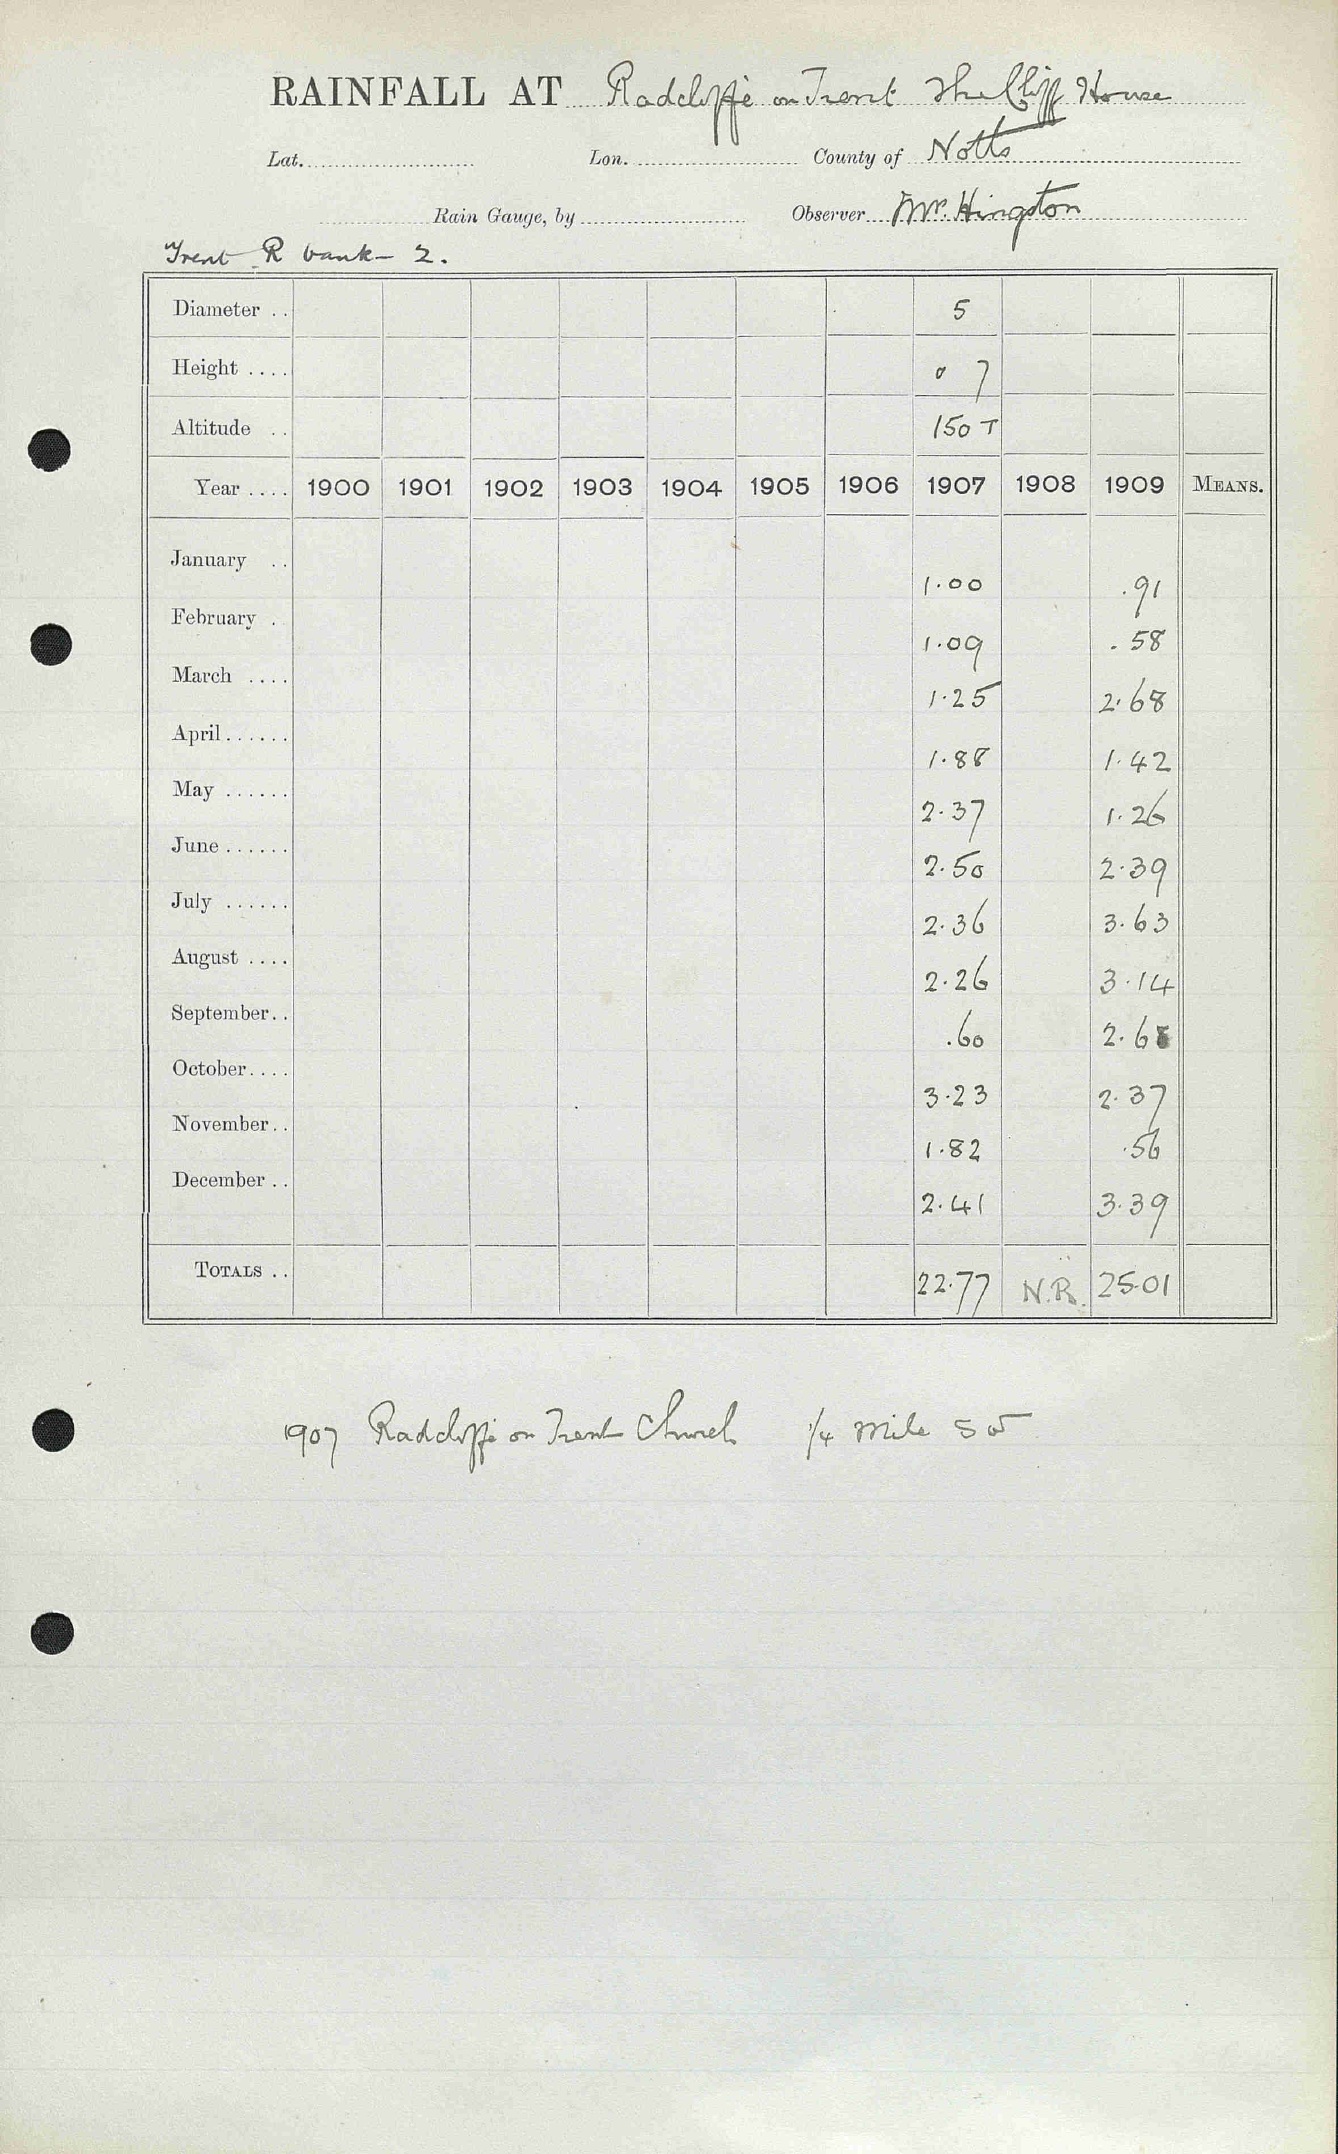 RAINFALL AT Radcliffe on Trent The Cliff House
Lat. Lon. County of Notts
Rain Gauge, by Observer Mr. Hingston
Trent R bank - 2.
Diameter .. 5
Height .... 0 7
Altitude .. 150 T
Year .... 1900 1901 1902 1903 1904 1905 1906 1907 1908 1909 MEANS.
January .. 1.00 .91
February . 1.09 .58
March .... 1.25 2.68
April ...... 1.88 1.42
May ...... 2.37 1.26
June ...... 2.50 2.39
July ...... 2.36 3.63
August .... 2.26 3.14
September .. .60 2.68
October .... 3.23 2.37
November .. 1.82 .56
December .. 2.41 3.39
TOTALS .. 22.77 N.R. 25.01
1907 Radcliffe on Trent Church 1/4 mile SW